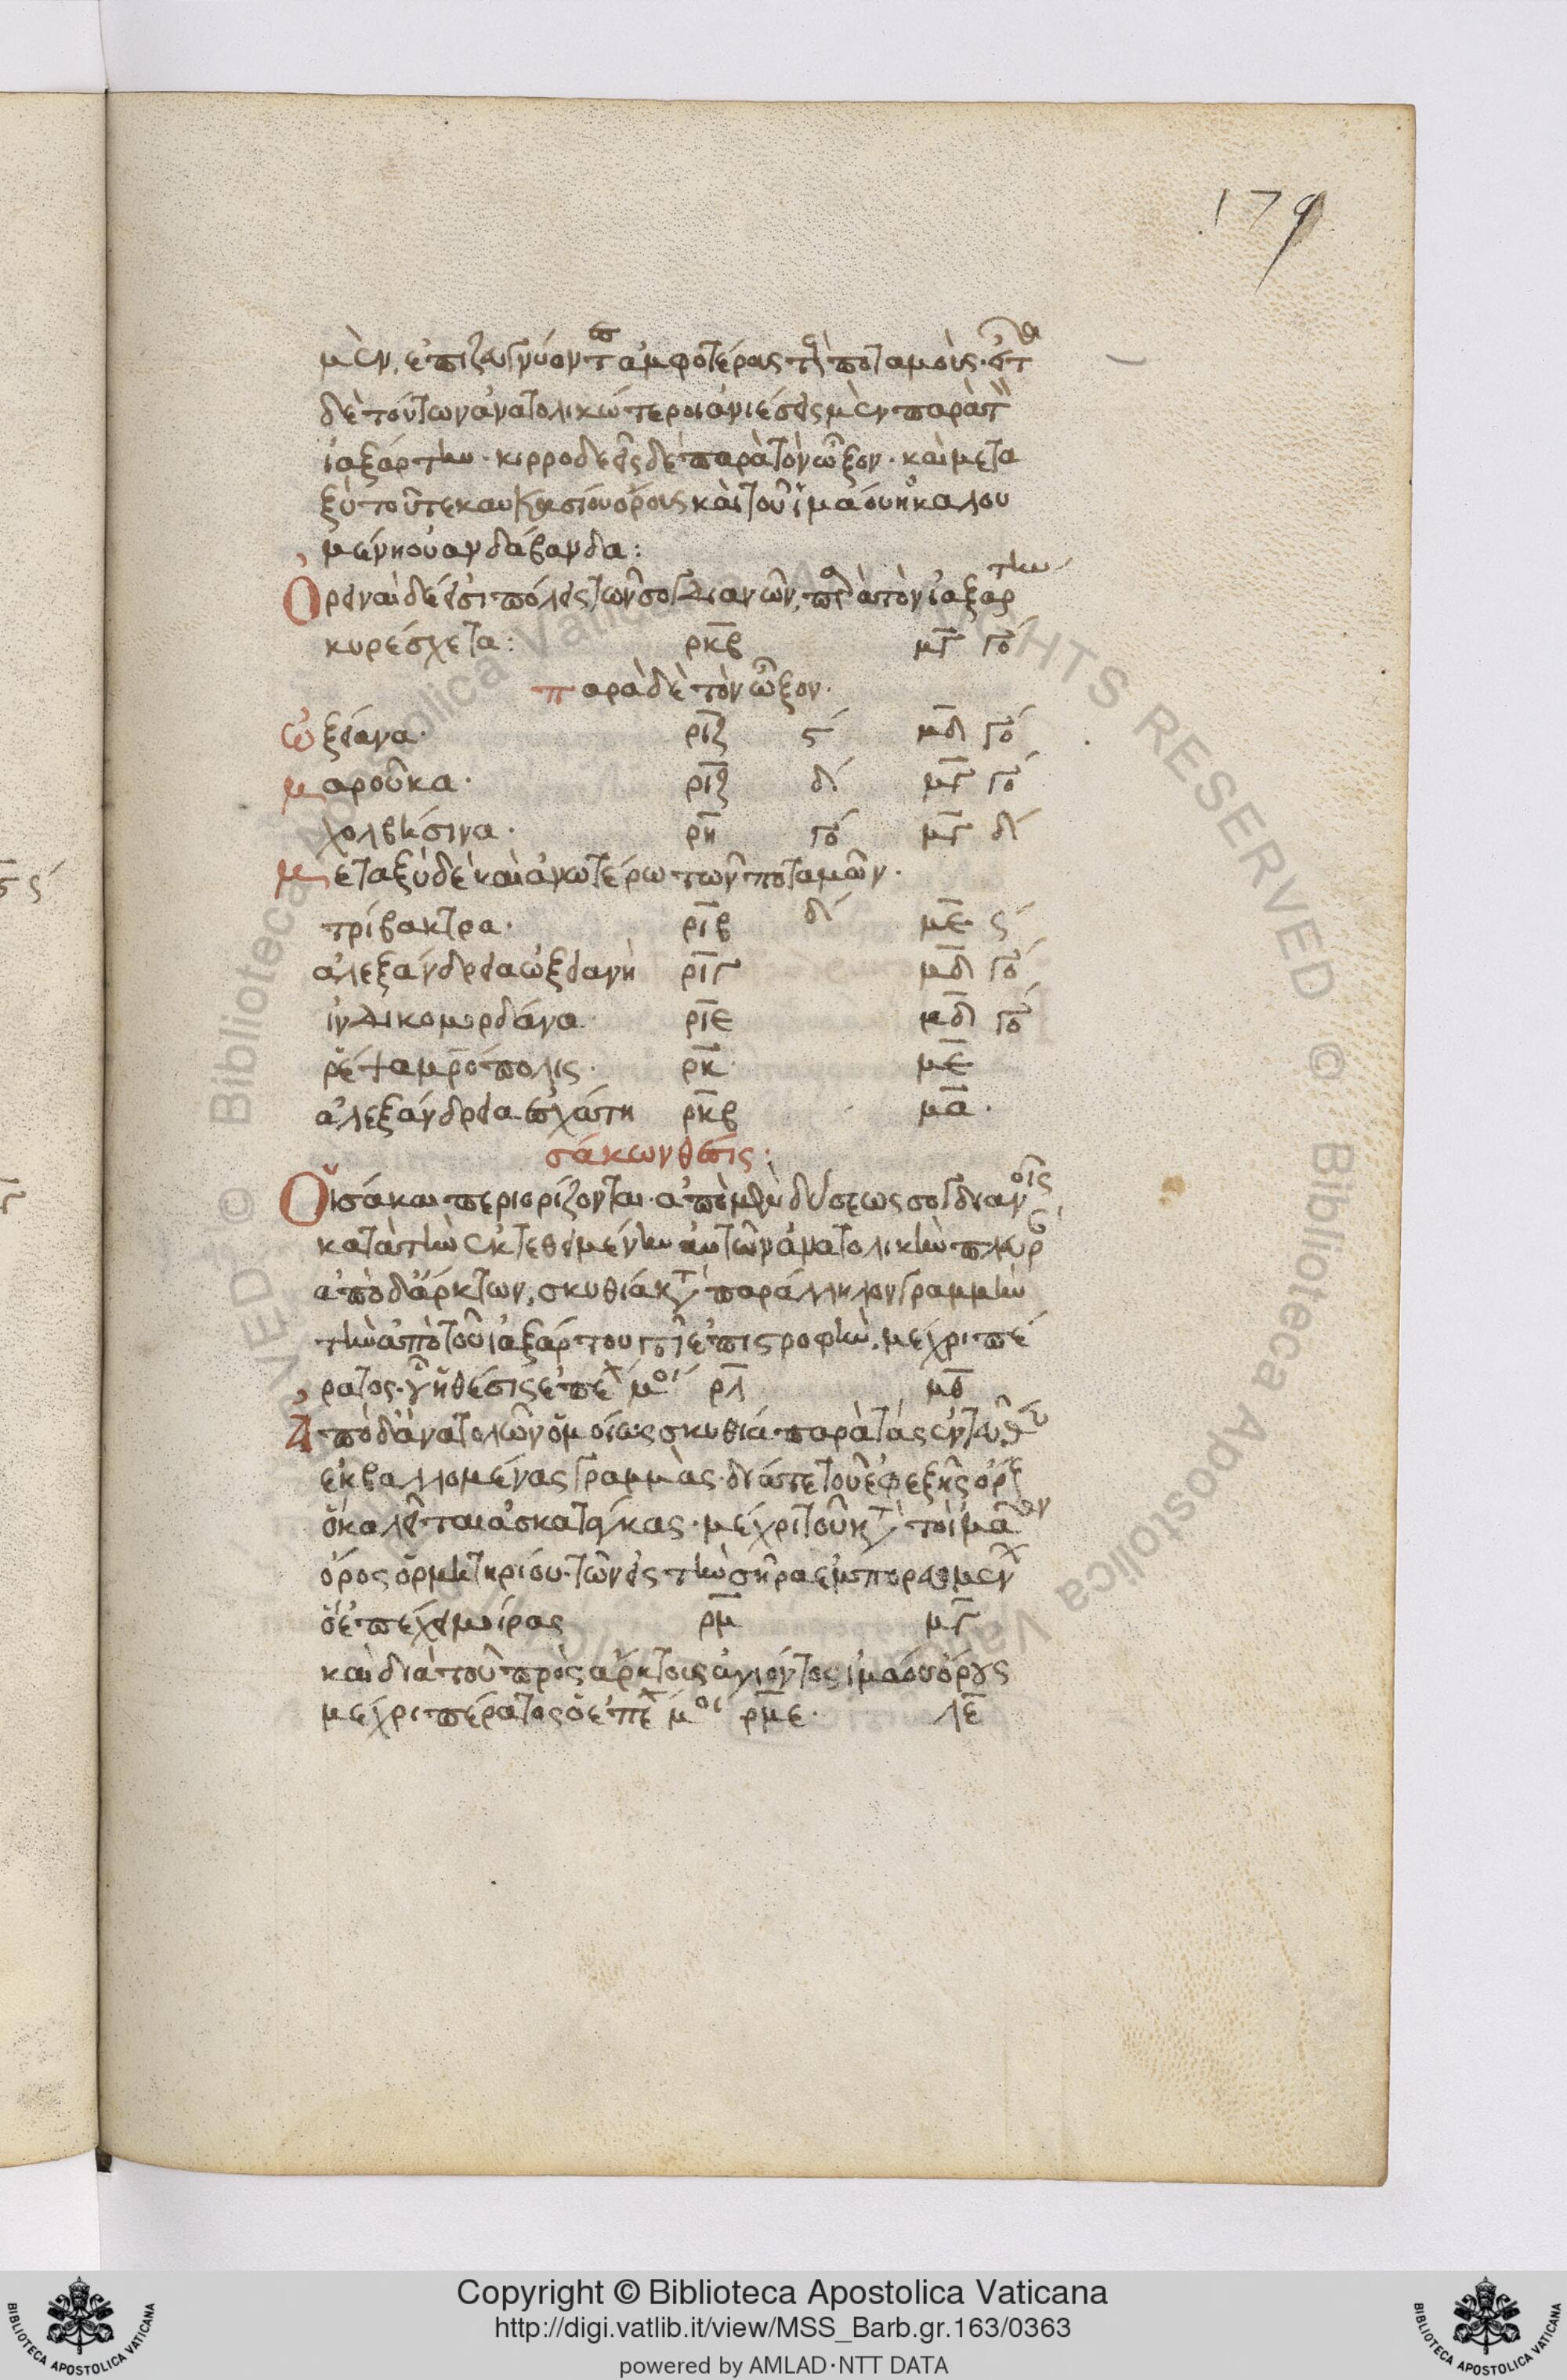 179
μὲν, ἐπιζευγνύοντες ἀμφοτέρους τοὺς ποταμούς· ἔτι
δὲ τούτων ἀνατολικώτεροι ἀνιέσεις μὲν παρὰ τὸν
ἰαξάρτην· κιρροδεεῖς δὲ παρὰ τὸν ὦξον· καὶ μετα
ξὺ τοῦ τε καυκασίου ὄρους καὶ τοῦ ἰμάου ἡ καλου
μένη οὐανδάβανδα:
Ὀρειναὶ δέ εἰσι πόλεις τῶν σογδιανῶν, παρὰ τὸν ἰαξάρτην
κυρέσχετα: ρκβ μγ γο
παρὰ δὲ τὸν ὦξον·
ὠξείανα· ριζ ς μδ γο
μαροῦκα· ριζ δ μγ γο
χολβησίνα· ρη γο μγ δ
μεταξὺ δὲ καὶ ἀνωτέρω τῶν ποταμῶν·
τρίβακτρα· ριβ δ με ς
ἀλεξάνδρεια ὠξειανή ριγ μδ γο
ἰνδικομορδάνα ριε μδ γο
ῥέψα μρόπολις· ρκ με
ἀλεξάνδρεια ἐσχάτη ρκβ μα·
σάκων θέσις:
Οἱ σάκαι περιορίζονται· ἀπὸ μὲν δύσεως σογδιανοῖς
κατὰ τὴν ἐκτεθειμένην αὐτῶν ἀνατολικὴν πλευρ
ἀπὸ δ' ἄρκτων, σκυθία κατὰ παράλληλον γραμμὴν
τὴν ἀπὸ τοῦ ἰαξάρτου ἐπιστροφὴν, μέχρι πέ
ρατος· ἡ θέσις ἐπέχει μοί ρλ μθ
Ἀπὸ δ' ἀνατολῶν ὁμοίως σκυθία παρὰ τὰς ἐντεῦθεν
ἐκβαλλομένας γραμμὰς· διά τε τοῦ ἐφεξῆς ὄρ
ὃ καλεῖται ἀσκατάγκας· μέχρι τοῦ κατὰ τὸ ἰμάον
ὄρος ὁρμητηρίου· τῶν εἰς τὴν σῆρα ἐμπορευομέν
ὃ ἐπέχει μοίρας ρμ μγ
καὶ διὰ τοῦ πρὸς ἄρκτους ἀνιόντος ἰμάου ὄρους
μέχρι πέρατος ὃ ἐπέχει μοί ρμε· λε
Copyright © Biblioteca Apostolica Vaticana
http://digi.vatlib.it/view/MSS_Barb.gr.163/0363
powered by AMLAD·NTT DATA